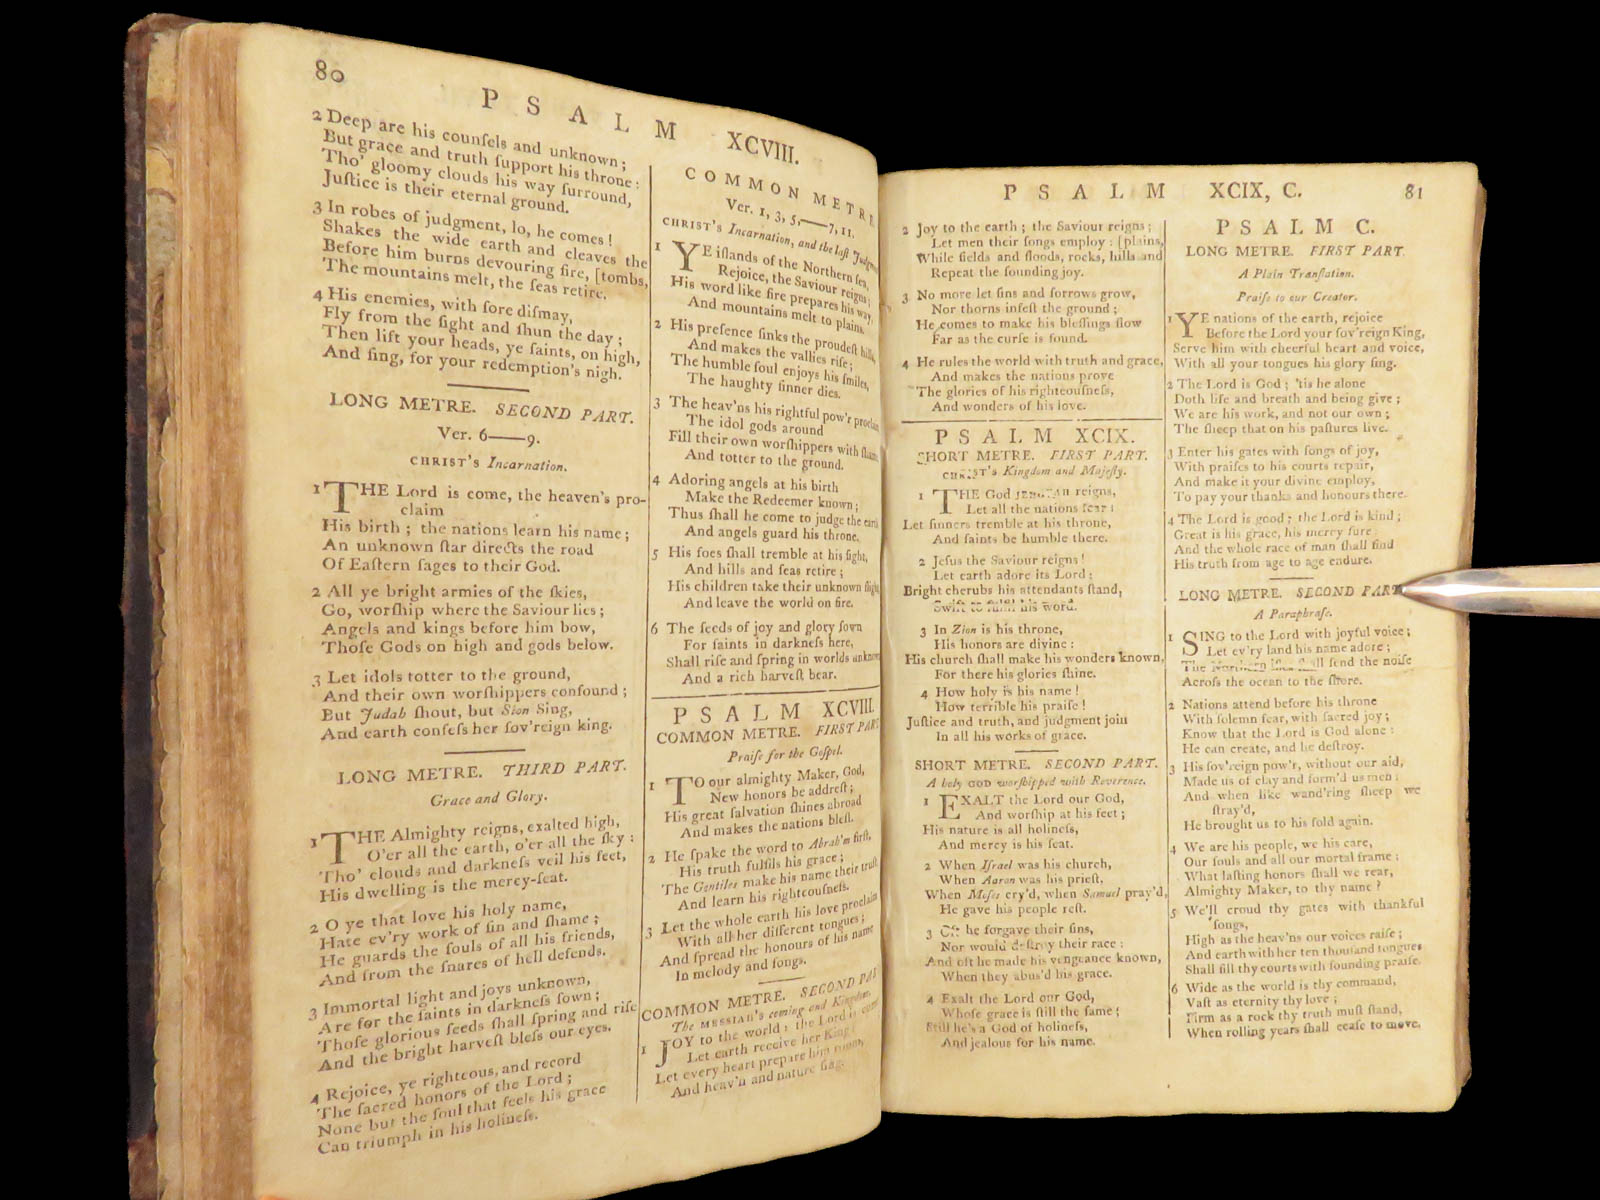 80
PSALM XCVIII.
2 Deep are his counſels and unknown;
But grace and truth ſupport his throne:
Tho' gloomy clouds his way ſurround,
Juſtice is their eternal ground.
3 In robes of judgment, lo, he comes!
Shakes the wide earth and cleaves the
Before him burns devouring fire, [tombs,
The mountains melt, the ſeas retire.
4 His enemies, with ſore diſmay,
Fly from the ſight and ſhun the day;
Then lift your heads, ye ſaints, on high,
And ſing, for your redemption's nigh.
LONG METRE. SECOND PART.
Ver. 6—9.
CHRIST'S Incarnation.
1 THE Lord is come, the heaven's pro-
claim
His birth; the nations learn his name;
An unknown ſtar directs the road
Of Eaſtern ſages to their God.
2 All ye bright armies of the ſkies,
Go, worſhip where the Saviour lies;
Angels and kings before him bow,
Thoſe Gods on high and gods below.
3 Let idols totter to the ground,
And their own worſhippers confound;
But Judah ſhout, but Sion Sing,
And earth confeſs her ſov'reign king.
LONG METRE. THIRD PART.
Grace and Glory.
1 THE Almighty reigns, exalted high,
O'er all the earth, o'er all the ſky:
Tho' clouds and darkneſs veil his feet,
His dwelling is the mercy-ſeat.
2 O ye that love his holy name,
Hate ev'ry work of ſin and ſhame;
He guards the ſouls of all his friends,
And from the ſnares of hell defends.
3 Immortal light and joys unknown,
Are for the ſaints in darkneſs ſown;
Thoſe glorious ſeeds ſhall ſpring and riſe
And the bright harveſt bleſs our eyes.
4 Rejoice, ye righteous, and record
The ſacred honors of the Lord;
None but the ſoul that feels his grace
Can triumph in his holineſs.
COMMON METRE
Ver. 1, 3, 5,—7, 11.
CHRIST'S Incarnation, and the laſt
1 YE iſlands of the Northern ſea,
Rejoice, the Saviour reigns;
His word like fire prepares his way,
And mountains melt to plains.
2 His preſence ſinks the proudeſt hills,
And makes the vallies riſe;
The humble ſoul enjoys his ſmiles,
The haughty ſinner dies.
3 The heav'ns his rightful pow'r proclaim
The idol gods around
Fill their own worſhippers with ſhame,
And totter to the ground.
4 Adoring angels at his birth
Make the Redeemer known;
Thus ſhall he come to judge the earth
And angels guard his throne.
5 His foes ſhall tremble at his ſight,
And hills and ſeas retire;
His children take their unknown flight
And leave the world on fire.
6 The ſeeds of joy and glory ſown
For ſaints in darkneſs here,
Shall riſe and ſpring in worlds unknown
And a rich harveſt bear.
PSALM XCVIII.
COMMON METRE. FIRST PART
Praiſe for the Goſpel.
1 TO our almighty Maker, God,
New honors be addreſt;
His great ſalvation ſhines abroad
And makes the nations bleſt.
2 He ſpake the word to Abrah'm firſt,
His truth fulfils his grace;
The Gentiles make his name their truſt
And learn his righteouſneſs.
3 Let the whole earth his love proclaim
With all her different tongues;
And ſpread the honours of his name
In melody and ſongs.
COMMON METRE. SECOND PAR
The MESSIAH's coming and Kingdom.
1 JOY to the world: the Lord is come
Let earth receive her King;
Let every heart prepare him room,
And heav'n and nature ſing.
PSALM XCIX, C. 81
2 Joy to the earth; the Saviour reigns;
Let men their ſongs employ: [plains,
While fields and floods, rocks, hills and
Repeat the ſounding joy.
3 No more let ſins and ſorrows grow,
Nor thorns infeſt the ground;
He comes to make his bleſſings flow
Far as the curſe is found.
4 He rules the world with truth and grace,
And makes the nations prove
The glories of his righteouſneſs,
And wonders of his love.
PSALM XCIX.
SHORT METRE. FIRST PART.
CHRIST'S Kingdom and Majeſty.
1 THE God JEHOVAH reigns,
Let all the nations fear:
Let ſinners tremble at his throne,
And ſaints be humble there.
2 Jeſus the Saviour reigns!
Let earth adore its Lord;
Bright cherubs his attendants ſtand,
Swift to fulfil his word.
3 In Zion is his throne,
His honors are divine:
His church ſhall make his wonders known,
For there his glories ſhine.
4 How holy is his name!
How terrible his praiſe!
Juſtice and truth, and judgment join
In all his works of grace.
SHORT METRE. SECOND PART.
A holy GOD worſhipped with Reverence.
1 EXALT the Lord our God,
And worſhip at his feet;
His nature is all holineſs,
And mercy is his ſeat.
2 When Iſrael was his church,
When Aaron was his prieſt,
When Moſes cry'd, when Samuel pray'd,
He gave his people reſt.
3 Oft he forgave their ſins,
Nor would deſtroy their race:
And oft he made his vengeance known,
When they abus'd his grace.
4 Exalt the Lord our God,
Whoſe grace is ſtill the ſame;
Still he's a God of holineſs,
And jealous for his name.
PSALM C.
LONG METRE. FIRST PART.
A Plain Tranſlation.
Praiſe to our Creator.
1 YE nations of the earth, rejoice
Before the Lord your ſov'reign King,
Serve him with cheerful heart and voice,
With all your tongues his glory ſing.
2 The Lord is God; 'tis he alone
Doth life and breath and being give;
We are his work, and not our own;
The ſheep that on his paſtures live.
3 Enter his gates with ſongs of joy,
With praiſes to his courts repair,
And make it your divine employ,
To pay your thanks and honours there.
4 The Lord is good; the Lord is kind;
Great is his grace, his mercy ſure:
And the whole race of man ſhall find
His truth from age to age endure.
LONG METRE. SECOND PART
A Paraphraſe.
1 SING to the Lord with joyful voice;
Let ev'ry land his name adore;
The Northern iſles ſhall ſend the noiſe
Acroſs the ocean to the ſhore.
2 Nations attend before his throne
With ſolemn fear, with ſacred joy;
Know that the Lord is God alone:
He can create, and he deſtroy.
3 His ſov'reign pow'r, without our aid,
Made us of clay and form'd us men:
And when like wand'ring ſheep we
ſtray'd,
He brought us to his fold again.
4 We are his people, we his care,
Our ſouls and all our mortal frame:
What laſting honors ſhall we rear,
Almighty Maker, to thy name?
5 We'll croud thy gates with thankful
ſongs,
High as the heav'ns our voices raiſe;
And earth with her ten thouſand tongues
Shall fill thy courts with ſounding praiſe.
6 Wide as the world is thy command,
Vaſt as eternity thy love;
Firm as a rock thy truth muſt ſtand,
When rolling years ſhall ceaſe to move.